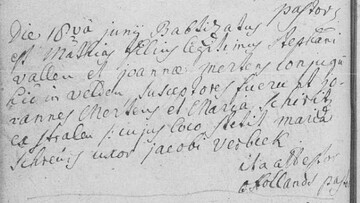 pastor
Die 18va junij Baptizatus
est Mathias filius legitimus Stephani
vallen et joannæ mertens conjugum
hic in velden susceptores fuere et Jo-
vannes Mertens et Maria
ex stralen : cujus loco stetit maria
uxor jacobi verbeek
ita attestor
Hollands past